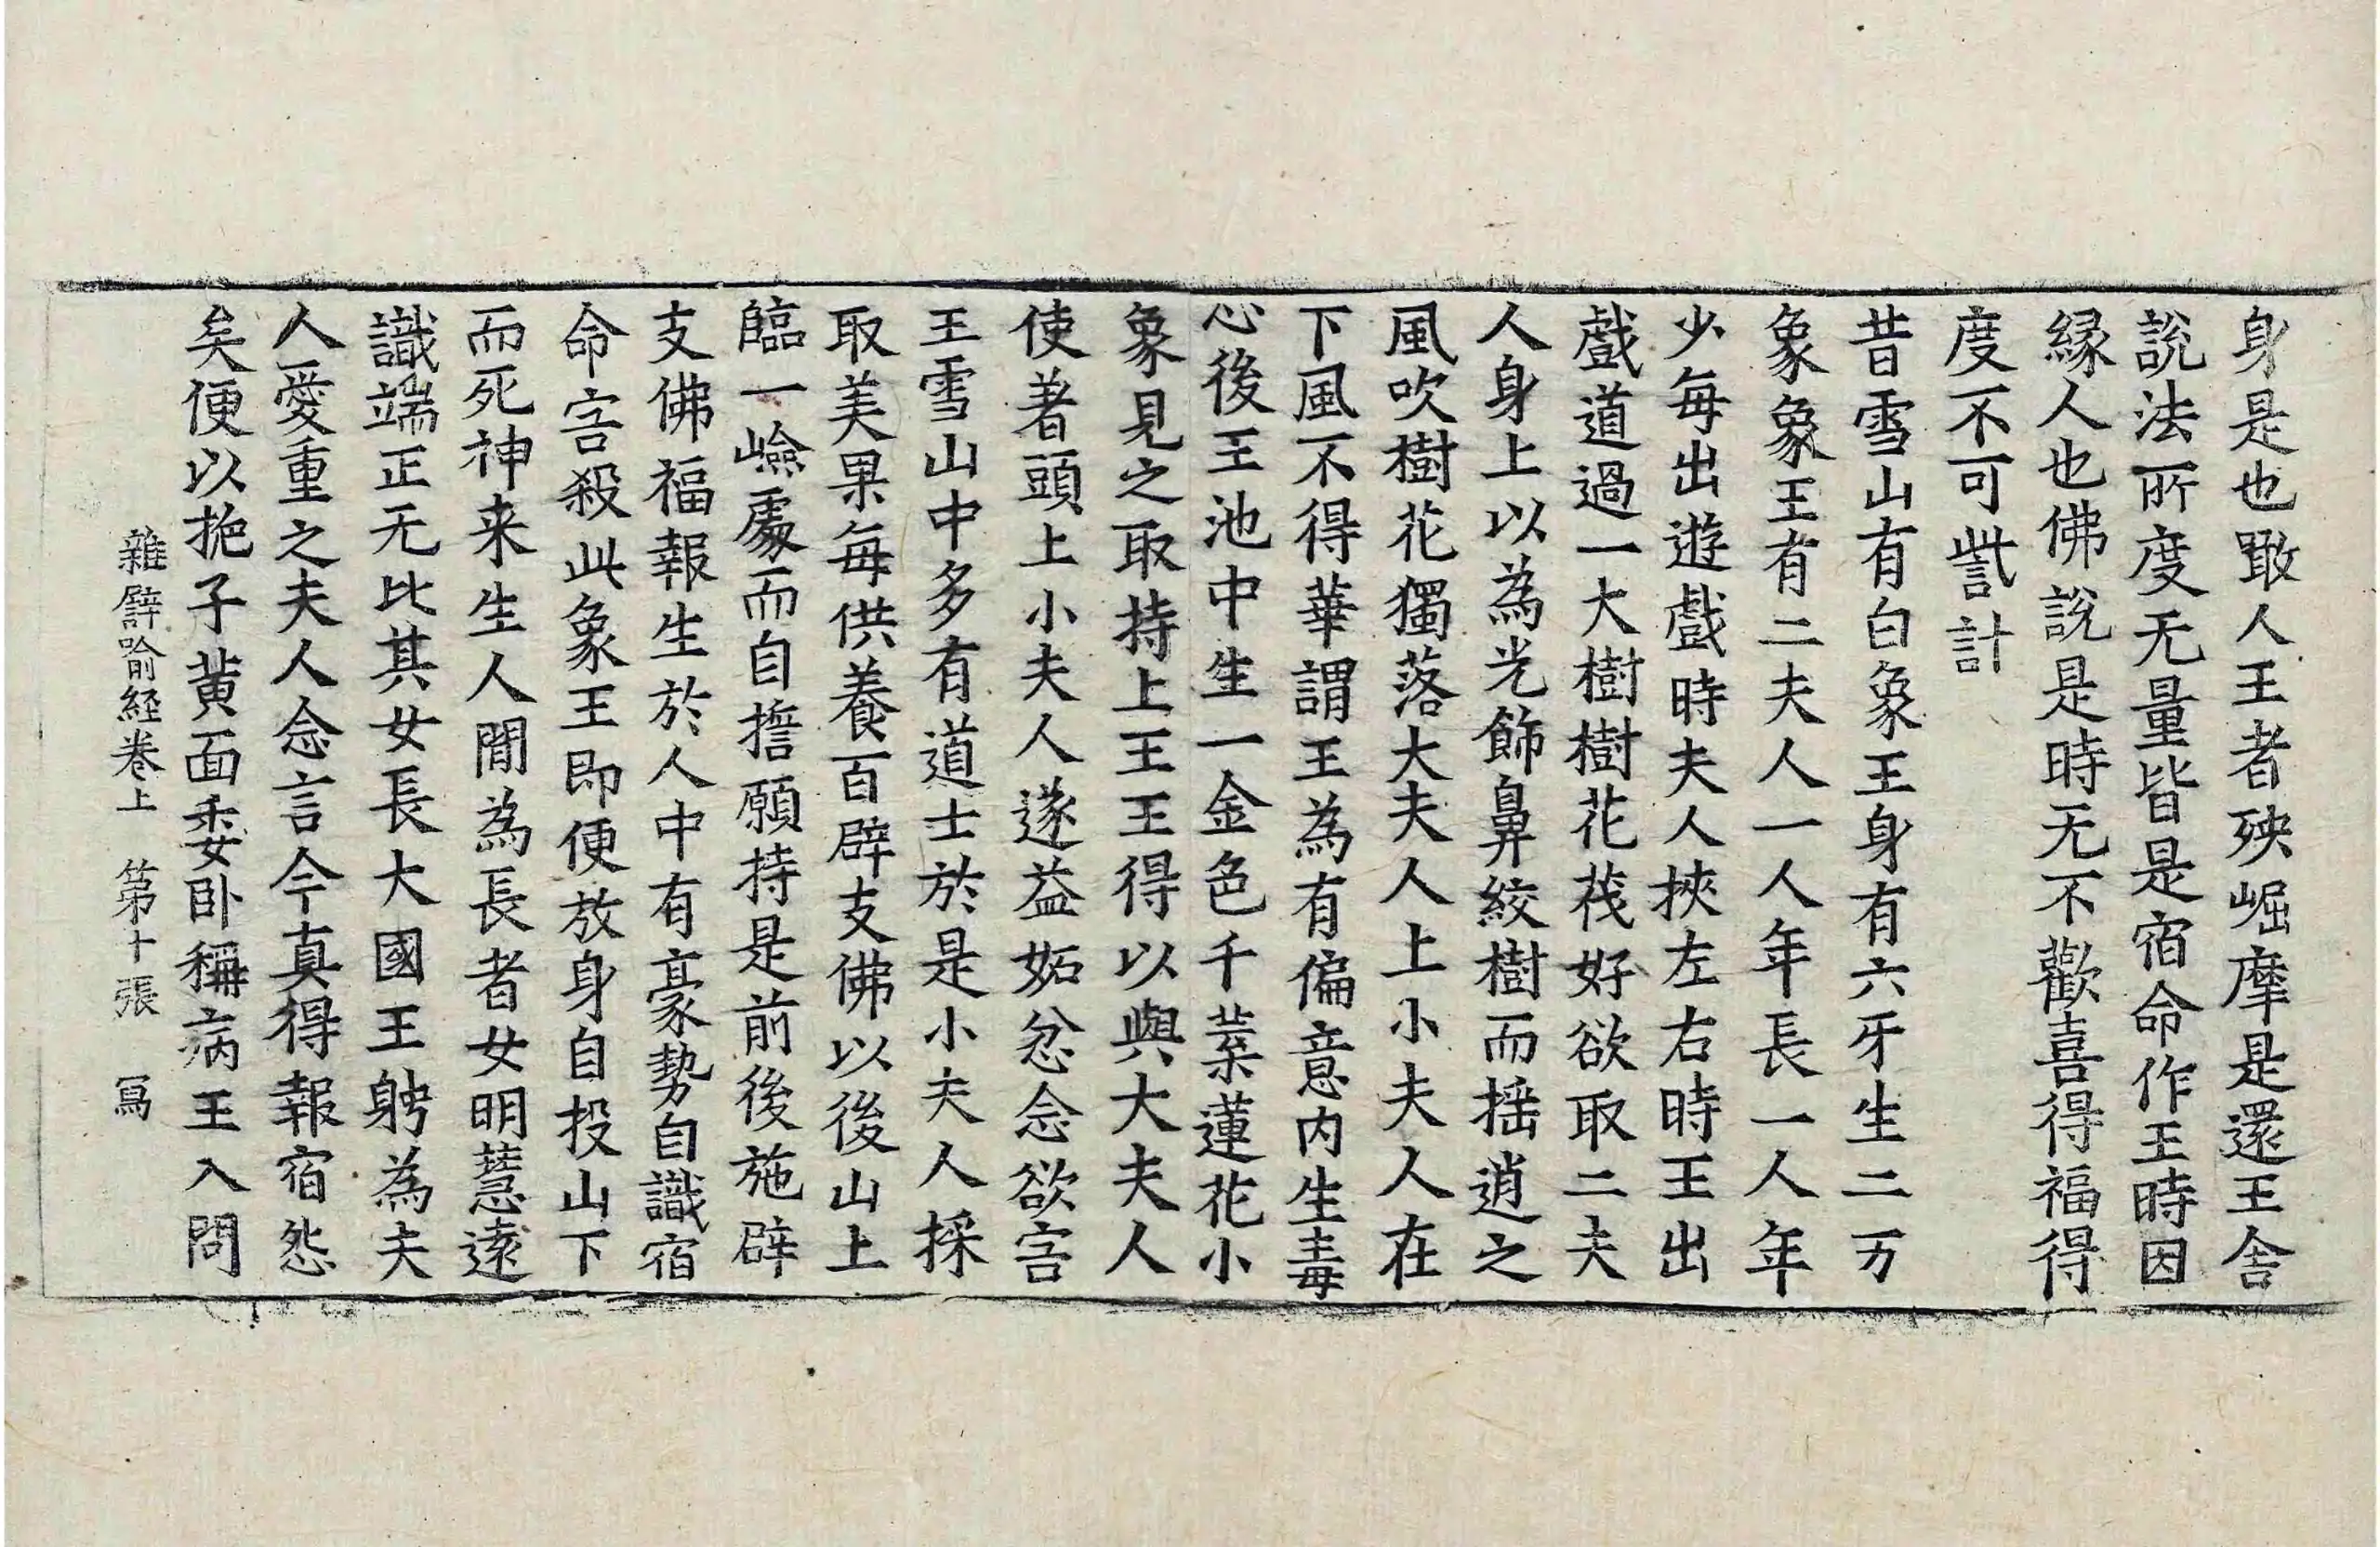 身是也噉人王者殃崛摩是還王舍
說法所度无量皆是宿命作王時因
縁人也佛說是時无不歡喜得福得
度不可訾計
昔雪山有白象王身有六牙生二万
象象王有二夫人一人年長一人年
少每出遊戲時夫人挾左右時王出
戲道過一大樹樹花茂好欲取二夫
人身上以為光飾鼻絞樹而搖逍之
風吹樹花獨落大夫人上小夫人在
下風不得華謂王為有偏意內生毒
心後王池中生一金色千葉蓮花小
象見之取持上王王得以與大夫人
使著頭上小夫人遂益妬忿念欲害
王雪山中多有道士於是小夫人採
取美果每供養百辟支佛以後山上
臨一嶮處而自誓願持是前後施辟
支佛福報生於人中有豪勢自識宿
命害殺此象王即便放身自投山下
而死神来生人間為長者女明慧遠
識端正无比其女長大國王娉為夫
人愛重之夫人念言今真得報宿怨
矣便以梔子黃面委卧稱病王入問
雜辟喻経卷上　第十張　寫